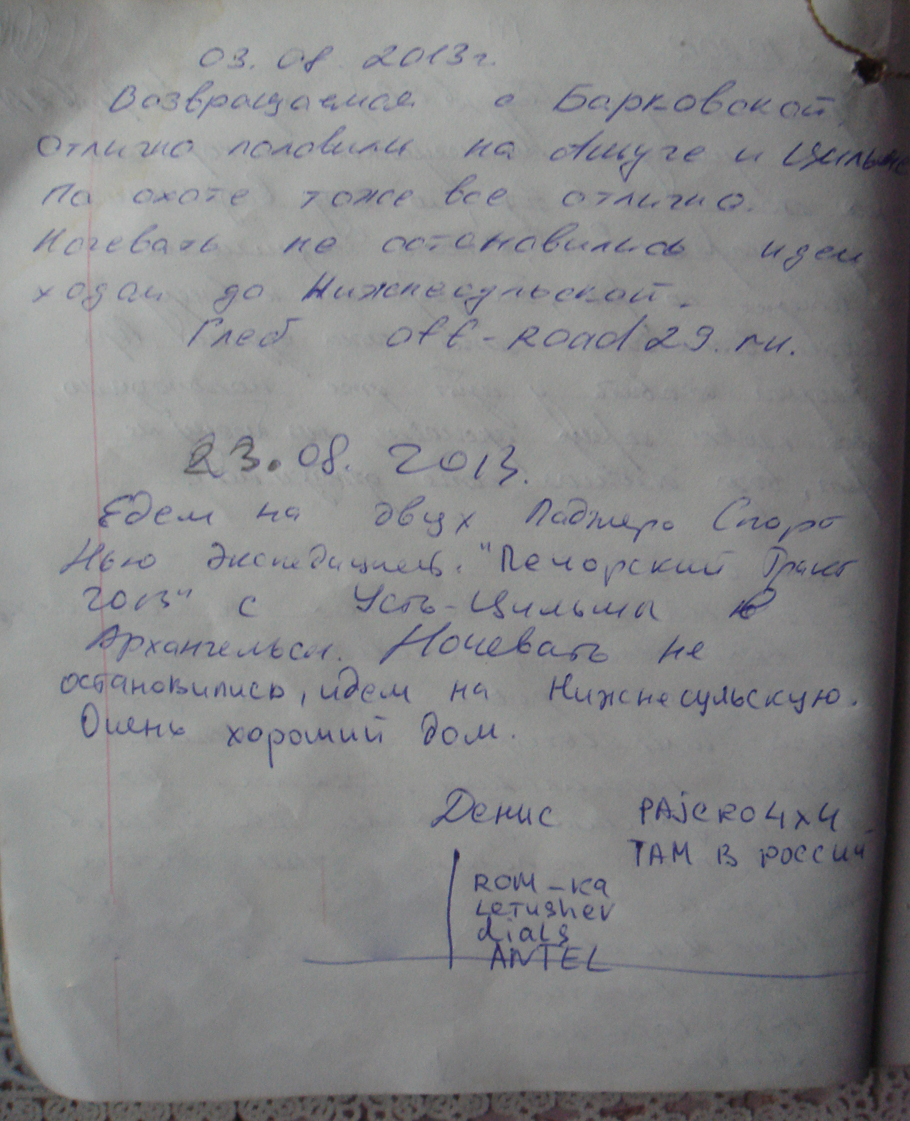 03.08.2013г.
Возвращаемся с Барковской.
Отлично половили на и Цильме
По охоте тоже все отлично.
Ночевать не остановились идем
ходом до Нижнесульской.
Глеб off-Road29.ru.
23.08.2013.
Едем на двух Паджеро Спорт
Нью экспедицией. "Печорский Тракт
2013" с Усть-Цильмы в
Архангельск. Ночевать не
остановились, идем на Нижнесульскую.
Очень хороший дом.
Денис PAJERO4x4
ТАМ В РОССИИ
ROM-KA
LETUSHEV
dials
ANTEL